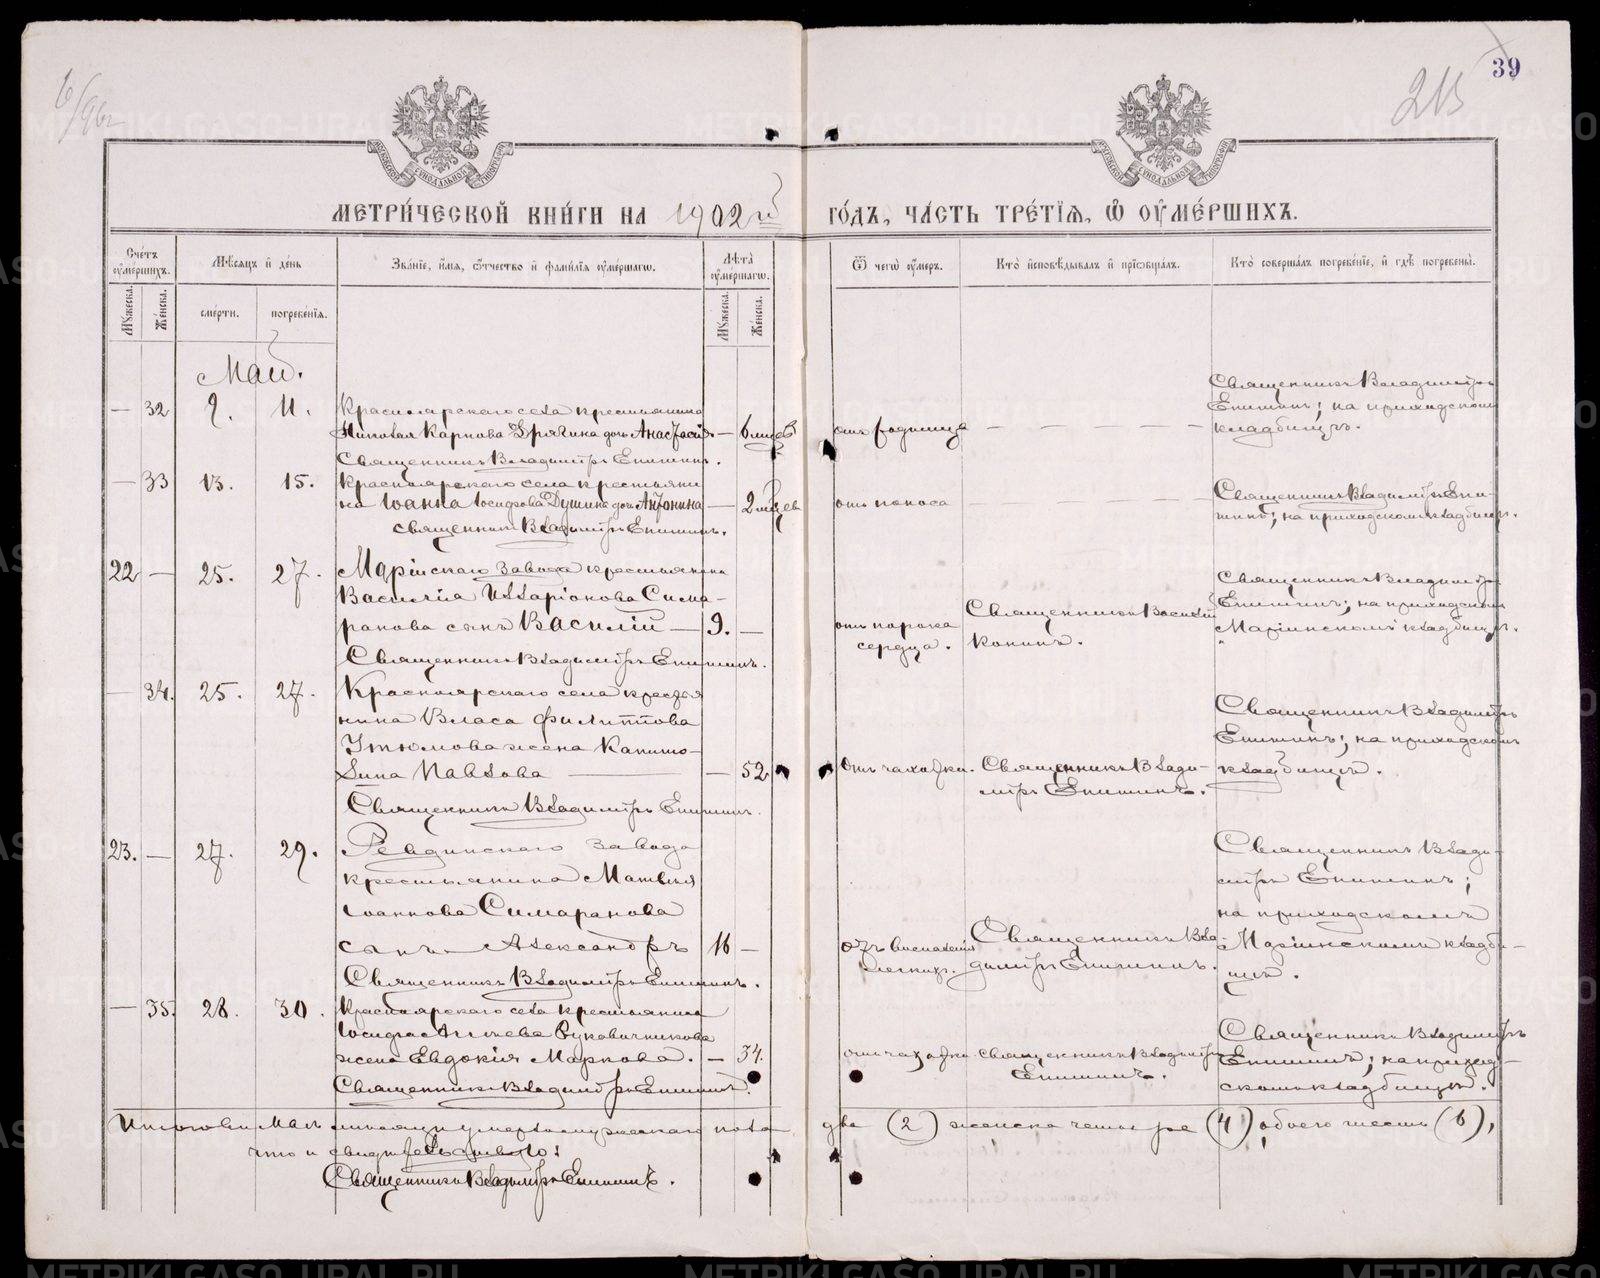 39
215
МЕТРИ́ЧЕСКОЙ КНИ́ГИ НА 1902й ГО́ДЪ, ЧА́СТЬ ТРЕ́ТІѦ, Ѽ ОУ҆МЕ́РШИХЪ.
Сче́тъ оу҆ме́ршихъ.
Мѣ́сяцъ и҆ де́нь
Зва́нїе, и҆́мя, ѻ҆́тчество и҆ фами́лїя оу҆ме́ршагѡ.
Лѣ́та оу҆ме́ршагѡ.
Ѿ чегѡ̀ оу҆́меръ.
Кто̀ и҆сповѣ́дывалъ и҆ прїѡбща́лъ.
Кто̀ соверша́лъ погребе́нїе, и҆ гдѣ̀ погребены̀.
Му́жеска.
Же́нска.
сме́рти.
погребе́нїя.
Му́жеска.
Же́нска.
Май.
— 32 9. 11. Красноярскаго села крестьянина
Николая Карпова Зрячина дочь Анастасія — 6 мцев
Священникъ Владиміръ Епишинъ.
отъ родимца — — — — —
Священникъ Владиміръ
Епишинъ; на приходскомъ
кладбищѣ.
— 33 13. 15. Красноярскаго села крестьяни
на Іоанна Іосифова Душина дочь Антонина — 2 мцев
священникъ Владиміръ Епишинъ.
отъ поноса — — —
Священникъ Владиміръ Епи-
шинъ; на приходскомъ кладбищѣ.
22 — 25. 27. Маріинскаго завода крестьянина
Василія Илларіонова Сима-
ранова сынъ Василій — 9. —
Священникъ Владиміръ Епишинъ.
отъ порока
сердца.
Священникъ Василій
Конинъ.
Священникъ Владиміръ
Епишинъ; на приходскомъ
Маріинскомъ кладбищѣ.
— 34. 25. 27. Красноярскаго села крестья
нина Власа Филиппова
Утюмова жена Капито-
лина Павлова — — 52
Священникъ Владиміръ Епишинъ.
Отъ чахотки.
Священникъ Влади-
міръ Епишинъ.
Священникъ Владиміръ
Епишинъ; на приходскомъ
кладбищѣ.
23. — 27. 29. Ревдинскаго завода
крестьянина Матвѣя
Іоаннова Симаранова
сынъ Александръ 16 —
Священникъ Владиміръ Епишинъ.
отъ воспаленія
легкихъ.
Священникъ Вла-
диміръ Епишинъ.
Священникъ Влади-
міръ Епишинъ;
на приходскомъ
Маріинскомъ кладби-
щѣ.
— 35. 28. 30. Красноярскаго села крестьянина
Іосифа Рукавичникова
жена Евдокія Маркова. — 34.
Священникъ Владиміръ Епишинъ.
отъ чахотки.
священникъ Владиміръ
Епишинъ.
Священникъ Владиміръ
Епишинъ; на приход-
скомъ кладбищѣ.
Итого въ маѣ мѣсяцѣ умерло мужескаго пола два (2) женска четыре (4) обоего шесть (6),
что и свидѣтельствую:
Священникъ Владиміръ Епишинъ.
METRIKI.GASO-URAL.RU